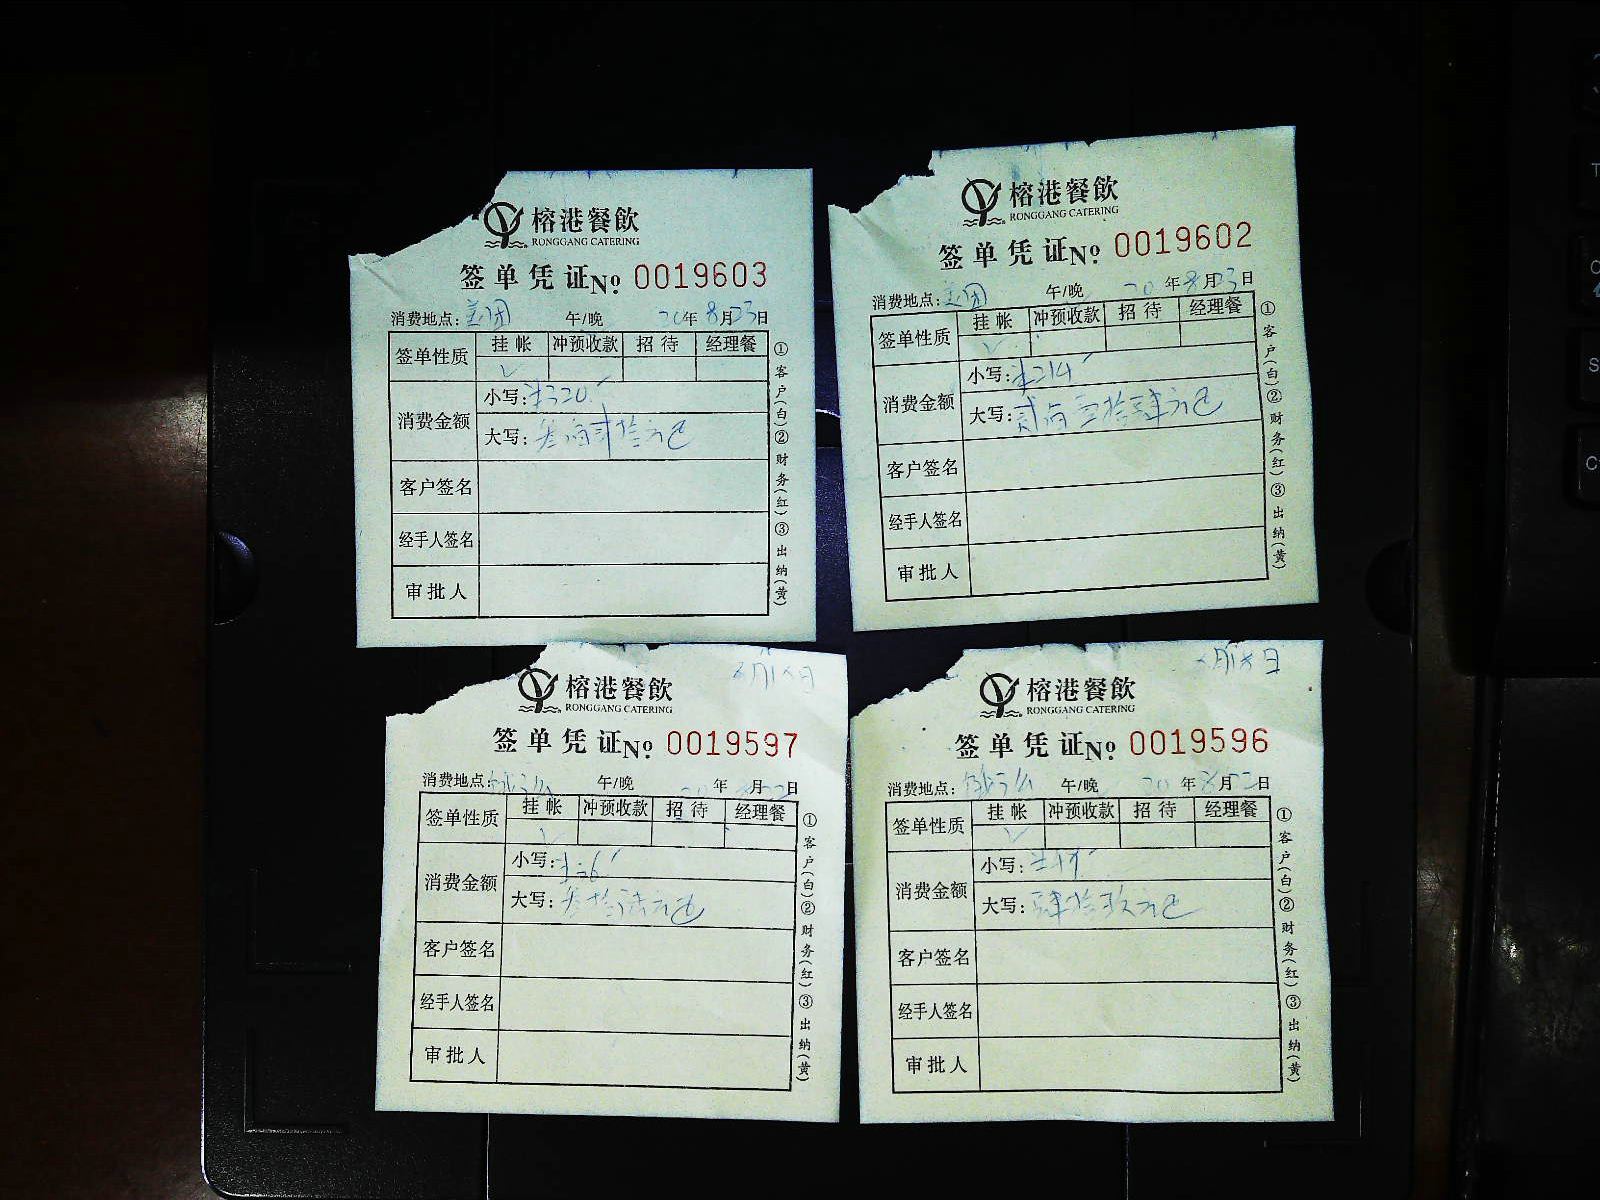 榕港餐飲
RONGGANG CATERING
签单凭证№ 0019603
消费地点: 美团 午/晚 20年8月23日
签单性质 挂帐 冲预收款 招待 经理餐
✓
消费金额 小写: ¥320
大写: 叁佰贰拾元
客户签名
经手人签名
审批人
①客户(白)②财务(红)③出纳(黄)
榕港餐飲
RONGGANG CATERING
签单凭证№ 0019602
消费地点: 美团 午/晚 20年8月23日
签单性质 挂帐 冲预收款 招待 经理餐
✓
消费金额 小写: ¥214
大写: 贰佰壹拾肆元
客户签名
经手人签名
审批人
①客户(白)②财务(红)③出纳(黄)
榕港餐飲
RONGGANG CATERING
签单凭证№ 0019597
消费地点: 午/晚 年 月 日
签单性质 挂帐 冲预收款 招待 经理餐
✓
消费金额 小写: ¥36
大写: 叁拾陆元
客户签名
经手人签名
审批人
①客户(白)②财务(红)③出纳(黄)
榕港餐飲
RONGGANG CATERING
签单凭证№ 0019596
消费地点: 午/晚 20年8月 日
签单性质 挂帐 冲预收款 招待 经理餐
✓
消费金额 小写: ¥49
大写: 肆拾玖元
客户签名
经手人签名
审批人
①客户(白)②财务(红)③出纳(黄)